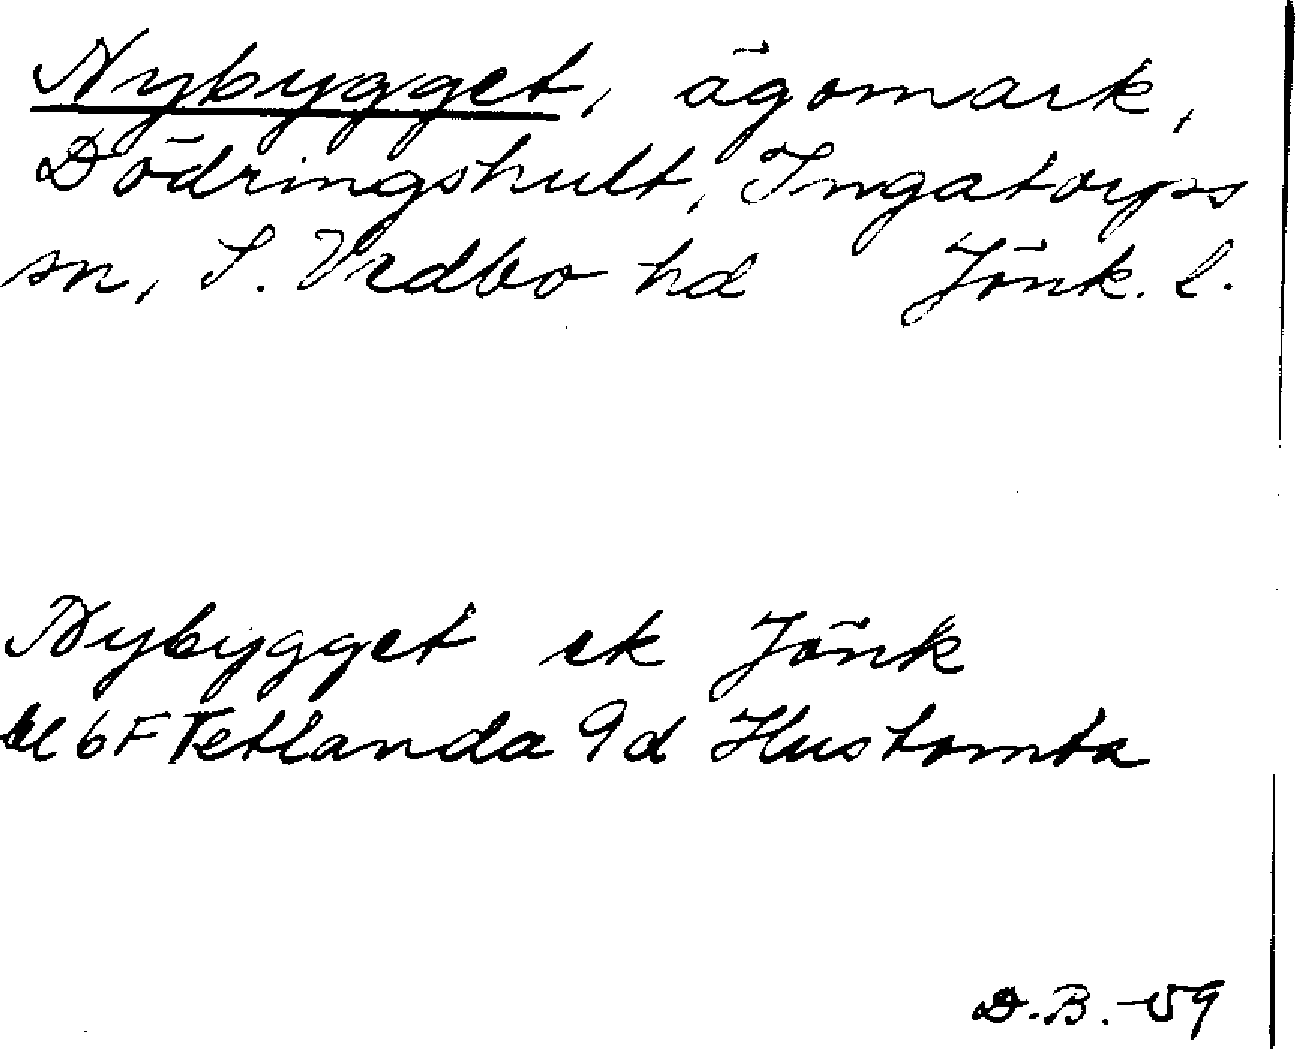 Nybygget, ägomark,
Dödringshult, Ingatorps
sn, S. Vedbo hd Jönk. l.
Nybygget ek Jönk
bl 6F Vetlanda 9d Hustomta
D.B. -59